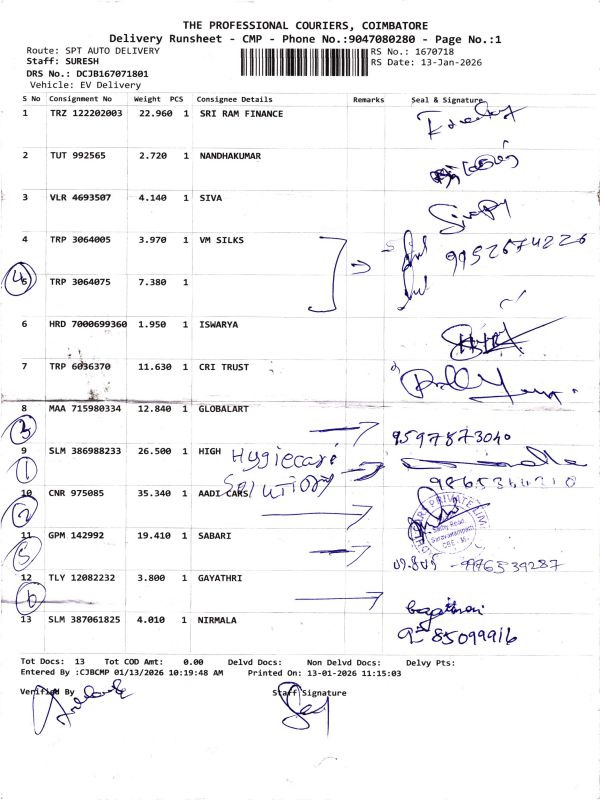 THE PROFESSIONAL COURIERS, COIMBATORE
Delivery Runsheet - CMP - Phone No.:9047080280 - Page No.:1
Route: SPT AUTO DELIVERY RS No.: 1670718
Staff: SURESH RS Date: 13-Jan-2026
DRS No.: DCJB167071801
Vehicle: EV Delivery
S No Consignment No Weight PCS Consignee Details Remarks Seal & Signature
1 TRZ 122202003 22.960 1 SRI RAM FINANCE
2 TUT 992565 2.720 1 NANDHAKUMAR
3 VLR 4693507 4.140 1 SIVA
4 TRP 3064005 3.970 1 VM SILKS 9952674226
4
5 TRP 3064075 7.380 1
6 HRD 7000699360 1.950 1 ISWARYA
7 TRP 6036370 11.630 1 CRI TRUST
8 MAA 715980334 12.840 1 GLOBALART
3 9597873040
9 SLM 386988233 26.500 1 HIGH Hygiecare
1 9865344310
10 CNR 975085 35.340 1 AADI CARS
2
11 GPM 142992 19.410 1 SABARI
5 9976539287
12 TLY 12082232 3.800 1 GAYATHRI
6
13 SLM 387061825 4.010 1 NIRMALA
Tot Docs: 13 Tot COD Amt: 0.00 Delvd Docs: Non Delvd Docs: Delvy Pts:
Entered By :CJBCMP 01/13/2026 10:19:48 AM Printed On: 13-01-2026 11:15:03
Verified By Staff Signature